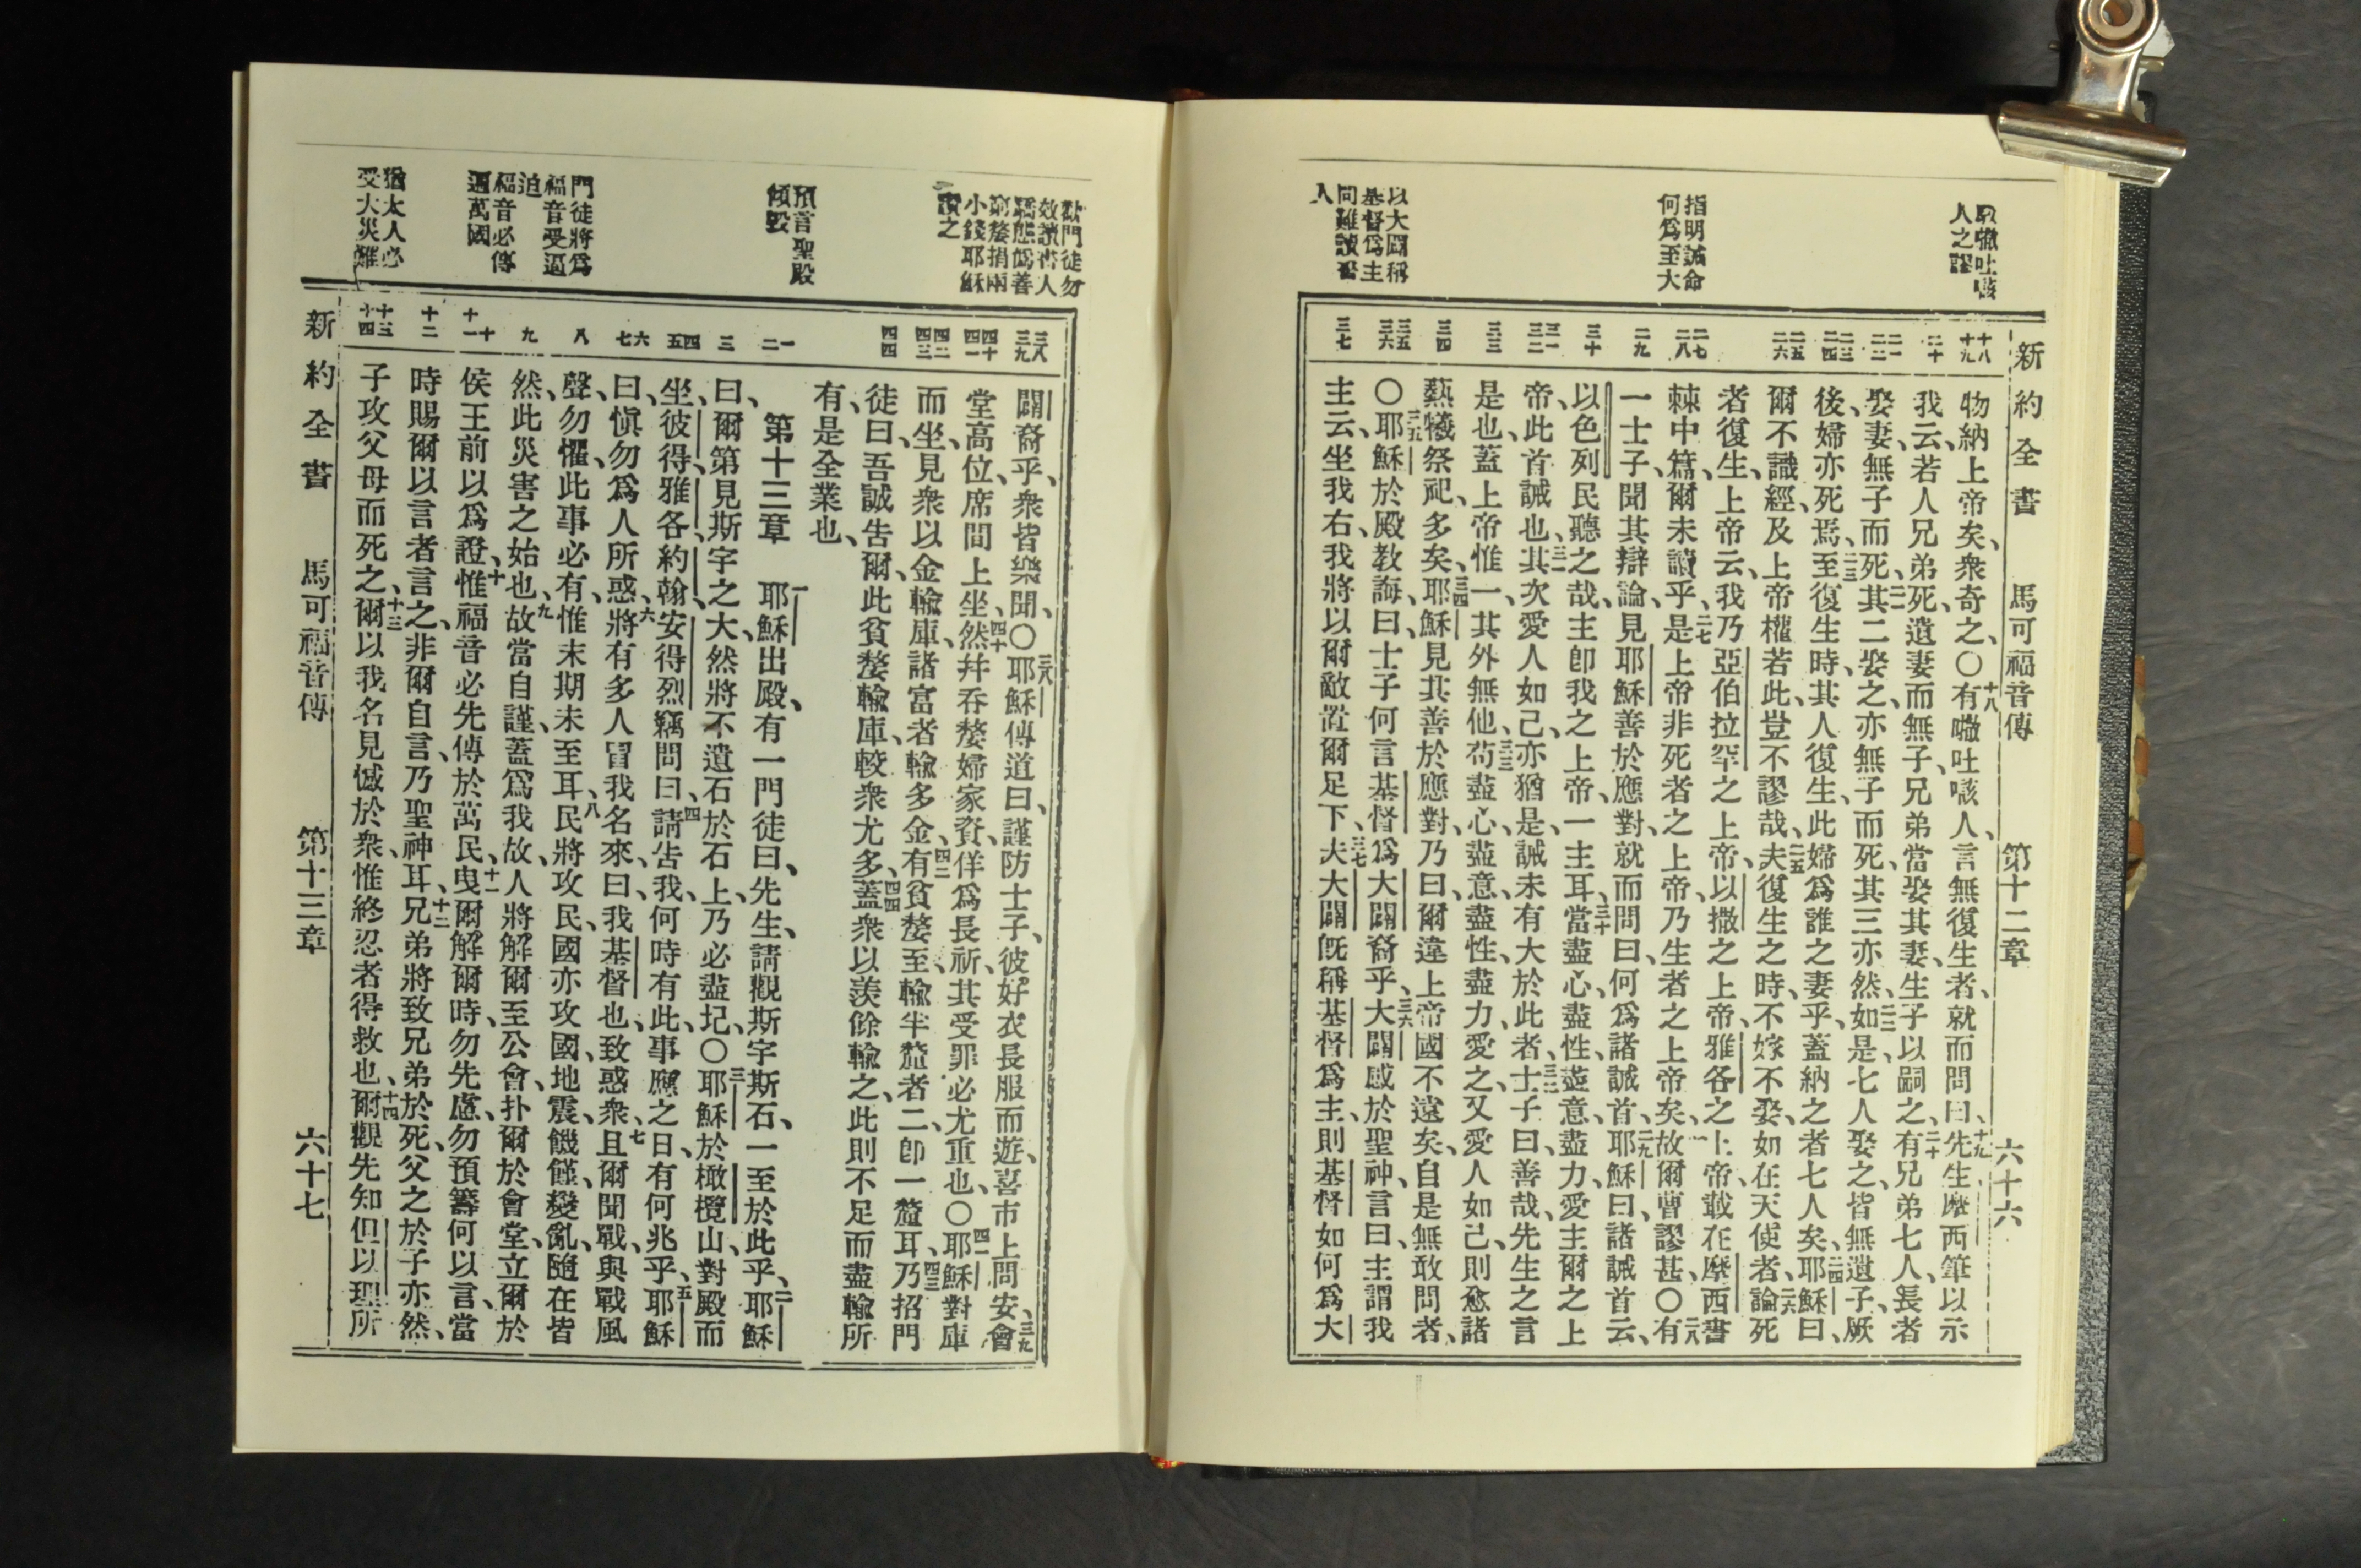 新約全書 馬可福音傳 第十二章 六十六
人之謬
指明誡命
何爲至大
以大闢稱
基督爲主
人
十八
十九
二十
二一
二二
二三
二四
二五
二六
二七
二八
二九
三十
三一
三二
三三
三四
三五
三六
三七
物納上帝矣、衆奇之、〇十八有㘔吐㗨人、言無復生者、就而問曰、十九先生、摩西筆以示
我云、若人兄弟死、遺妻而無子、兄弟當娶其妻、生子以嗣之、二十有兄弟七人、長者
娶妻、無子而死、二一其二娶之、亦無子而死、其三亦然、二二如是七人娶之、皆無遺子、厥
後、婦亦死焉、二三至復生時、其人復生、此婦爲誰之妻乎、蓋納之者七人矣、二四耶穌曰、
爾不識經、及上帝權若此、豈不謬哉、二五夫復生之時、不嫁不娶、如在天使者、二六論死
者復生、上帝云、我乃亞伯拉罕之上帝、以撒之上帝、雅各之上帝、載在摩西書
棘中篇、爾未讀乎、二七是上帝非死者之上帝、乃生者之上帝矣、故爾曹謬甚、〇二八有
一士子、聞其辯論、見耶穌善於應對、就而問曰、何爲諸誡首、二九耶穌曰、諸誡首云、
以色列民聽之哉、主卽我之上帝、一主耳、三十當盡心、盡性、盡意、盡力、愛主爾之上
帝、此首誡也、三一其次愛人如己、亦猶是、誡未有大於此者、三二士子曰、善哉、先生之言
是也、蓋上帝惟一、其外無他、三三苟盡心、盡意、盡性、盡力、愛之、又愛人如己、則愈諸
燕犧祭祀、多矣、三四耶穌見其善於應對、乃曰、爾違上帝國不遠矣、自是無敢問者、
〇三五耶穌於殿教誨、曰、士子何言基督爲大闢裔乎、三六大闢感於聖神、言曰、主謂我
主云、坐我右、我將以爾敵置爾足下、三七夫大闢旣稱基督爲主、則基督如何爲大
勸門徒勿
效讀書人
驕態僞善
窮嫠捐兩
小錢耶穌
讚之
預言聖殿
傾毀
門徒將爲
福音受逼
迫
福音必傳
遍萬國
猶太人必
受大災難
三八
三九
四十
四一
四二
四三
四四
一
二
三
四
五
六
七
八
九
十
十一
十二
十三
十四
闢裔乎、衆皆樂聞、〇三八耶穌傳道曰、謹防士子、彼好衣長服而遊、喜市上問安、三九會
堂高位、席間上坐、四十然幷吞嫠婦家資、佯爲長祈、其受罪必尤重也、〇四一耶穌對庫
而坐、見衆以金輸庫、諸富者輸多金、四二有貧嫠至、輸半釐者二、卽一釐耳、四三乃招門
徒曰、吾誠告爾、此貧嫠輸庫、較衆尤多、四四蓋衆以羨餘輸之、此則不足而盡輸所
有、是全業也、
第十三章 一耶穌出殿、有一門徒曰、先生、請觀斯宇斯石、一至於此乎、二耶穌
曰、爾第見斯宇之大、然將不遺石於石上、乃必盡圮、〇三耶穌於橄欖山、對殿而
坐、彼得、雅各、約翰、安得烈竊問曰、四請告我、何時有此、事應之日有何兆乎、五耶穌
曰、愼勿爲人所惑、六將有多人冒我名來、曰、我基督也、致惑衆、七且爾聞戰、與戰風
聲、勿懼、此事必有、惟末期未至耳、八民將攻民、國亦攻國、地震、饑饉、變亂、隨在皆
然、此災害之始也、九故當自謹、蓋爲我故、人將解爾至公會、扑爾於會堂、立爾於
侯王前、以爲證、十惟福音必先傳於萬民、十一曳爾解爾時、勿先慮、勿預籌何以言、當
時賜爾以言者言之、非爾自言、乃聖神耳、十二兄弟將致兄弟於死、父之於子亦然、
子攻父母而死之、十三爾以我名見憾於衆、惟終忍者得救也、十四爾觀先知但以理所
新約全書 馬可福音傳 第十三章 六十七